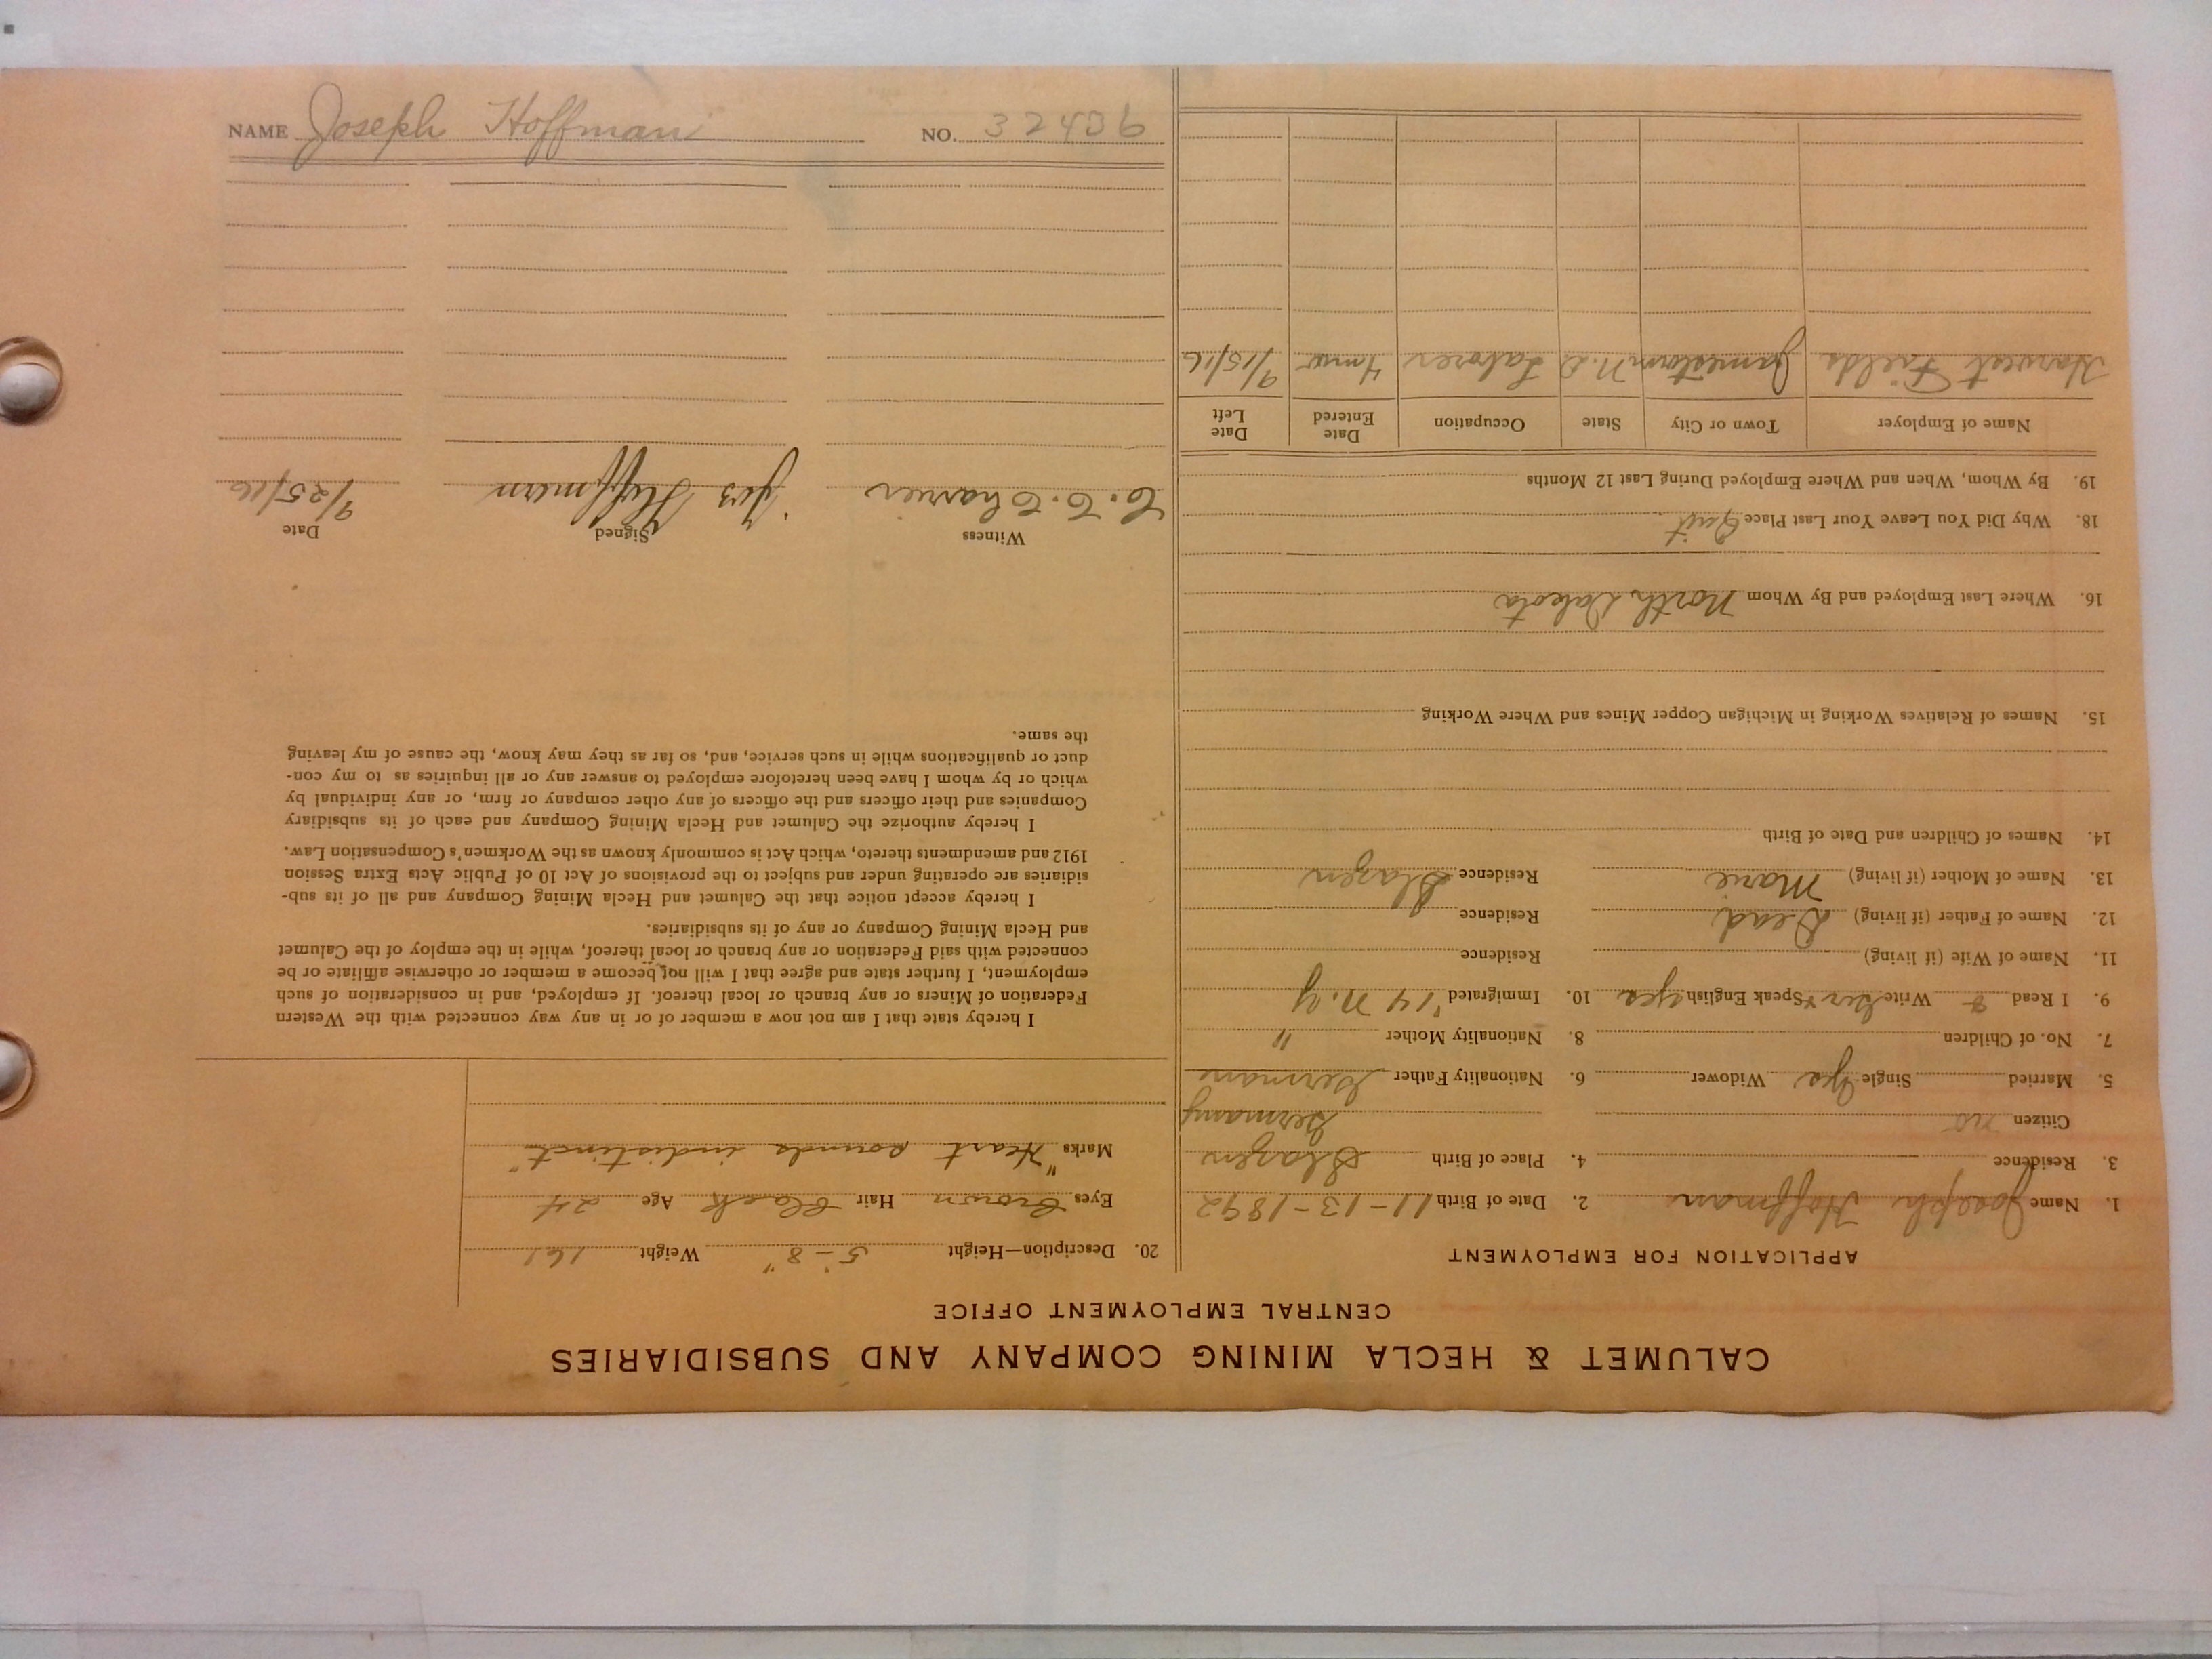 CALUMET & HECLA MINING COMPANY AND SUBSIDIARIES
CENTRAL EMPLOYMENT OFFICE
APPLICATION FOR EMPLOYMENT
1. Name Joseph Hoffman 2. Date of Birth 11-13-1892
3. Residence 4. Place of Birth
Citizen no Germany
5. Married Single Yes Widower 6. Nationality Father German
7. No. of Children 8. Nationality Mother "
9. I Read & Write Ger & Speak English yes 10. Immigrated '14 N.Y
11. Name of Wife (if living) Residence
12. Name of Father (if living) Dead Residence
13. Name of Mother (if living) Marie Residence
14. Names of Children and Date of Birth
15. Names of Relatives Working in Michigan Copper Mines and Where Working
16. Where Last Employed and By Whom North Dakota
18. Why Did You Leave Your Last Place Quit
19. By Whom, When and Where Employed During Last 12 Months
Name of Employer Town or City State Occupation Date Entered Date Left
Harvest Fields Jamestown N.D Laborer 4 mos 9/15/16
20. Description—Height 5'-8" Weight 161
Eyes Brown Hair Black Age 24
Marks "Heart sounds indistinct"
I hereby state that I am not now a member of or in any way connected with the Western
Federation of Miners or any branch or local thereof. If employed, and in consideration of such
employment, I further state and agree that I will not become a member or otherwise affiliate or be
connected with said Federation or any branch or local thereof, while in the employ of the Calumet
and Hecla Mining Company or any of its subsidiaries.
I hereby accept notice that the Calumet and Hecla Mining Company and all of its sub-
sidiaries are operating under and subject to the provisions of Act 10 of Public Acts Extra Session
1912 and amendments thereto, which Act is commonly known as the Workmen's Compensation Law.
I hereby authorize the Calumet and Hecla Mining Company and each of its subsidiary
Companies and their officers and the officers of any other company or firm, or any individual by
which or by whom I have been heretofore employed to answer any or all inquiries as to my con-
duct or qualifications while in such service, and, so far as they may know, the cause of my leaving
the same.
Witness Signed Date
Jos Hoffmann 9/25/16
NAME Joseph Hoffman NO. 32436